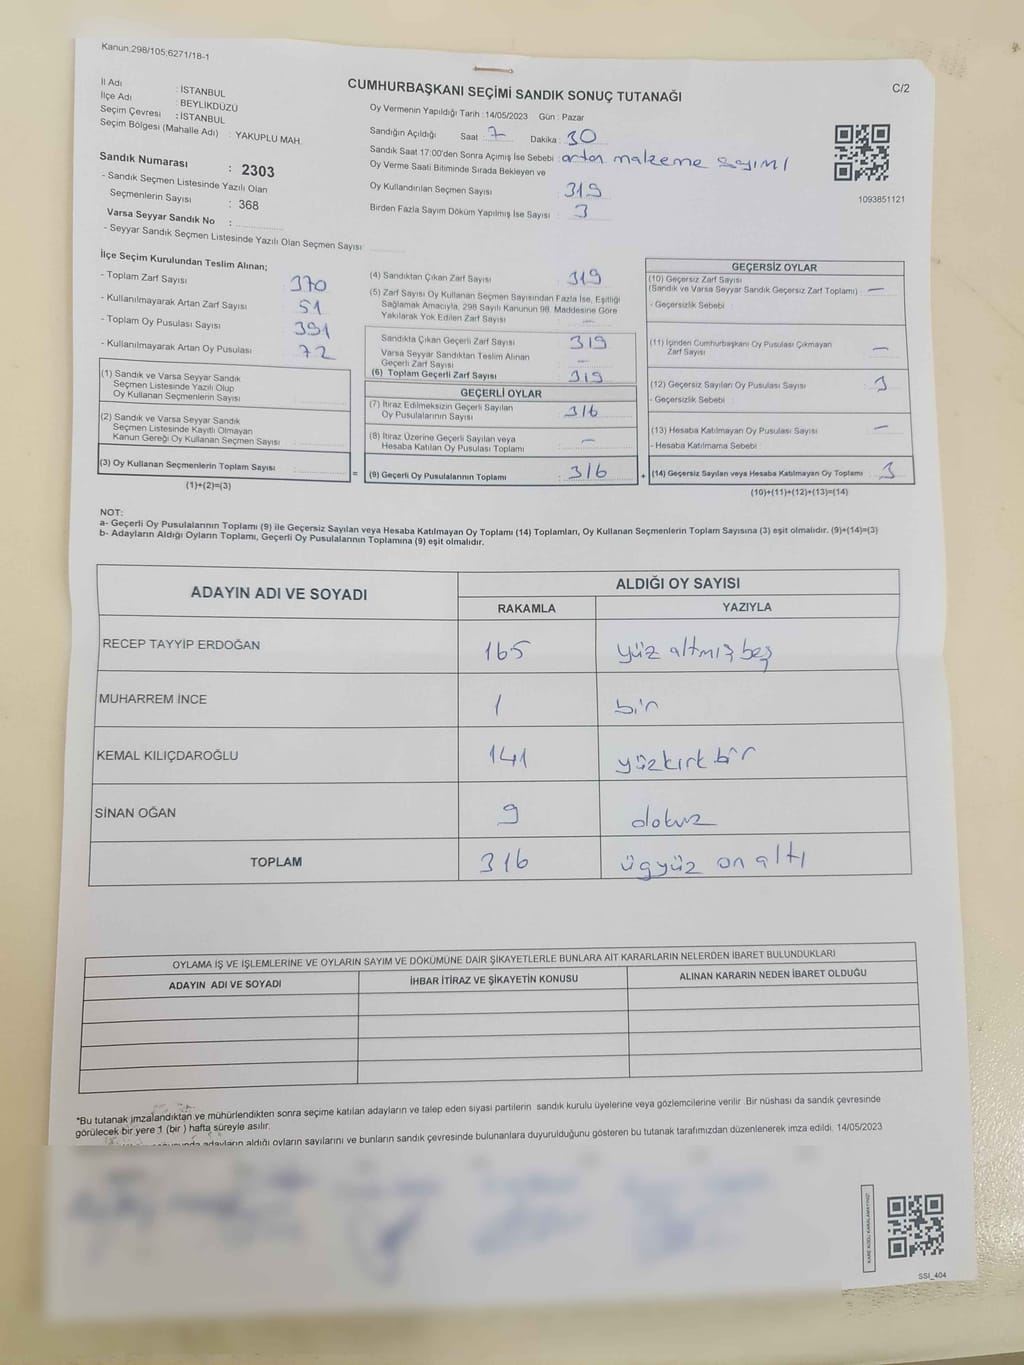 Kanun:298/105;6271/18-1
C/2
CUMHURBAŞKANI SEÇİMİ SANDIK SONUÇ TUTANAĞI
İl Adı : İSTANBUL
İlçe Adı : BEYLİKDÜZÜ
Seçim Çevresi : İSTANBUL
Seçim Bölgesi (Mahalle Adı) : YAKUPLU MAH.
Sandık Numarası : 2303
- Sandık Seçmen Listesinde Yazılı Olan
Seçmenlerin Sayısı : 368
Varsa Seyyar Sandık No :
- Seyyar Sandık Seçmen Listesinde Yazılı Olan Seçmen Sayısı:
Oy Vermenin Yapıldığı Tarih :14/05/2023 Gün : Pazar
Sandığın Açıldığı Saat : 7 Dakika : 30
Sandık Saat 17:00'den Sonra Açımış İse Sebebi : artan malzeme sayımı
Oy Verme Saati Bitiminde Sırada Bekleyen ve
Oy Kullandırılan Seçmen Sayısı : 319
Birden Fazla Sayım Döküm Yapılmış İse Sayısı : 3
1093851121
İlçe Seçim Kurulundan Teslim Alınan;
- Toplam Zarf Sayısı : 370
- Kullanılmayarak Artan Zarf Sayısı : 51
- Toplam Oy Pusulası Sayısı : 391
- Kullanılmayarak Artan Oy Pusulası : 72
(1) Sandık ve Varsa Seyyar Sandık
Seçmen Listesinde Yazılı Olup
Oy Kullanan Seçmenlerin Sayısı :
(2) Sandık ve Varsa Seyyar Sandık
Seçmen Listesinde Kayıtlı Olmayan
Kanun Gereği Oy Kullanan Seçmen Sayısı :
(3) Oy Kullanan Seçmenlerin Toplam Sayısı :
(1)+(2)=(3)
=
(4) Sandıktan Çıkan Zarf Sayısı : 319
(5) Zarf Sayısı Oy Kullanan Seçmen Sayısından Fazla İse, Eşitliği
Sağlamak Amacıyla, 298 Sayılı Kanunun 98. Maddesine Göre
Yakılarak Yok Edilen Zarf Sayısı : —
Sandıkta Çıkan Geçerli Zarf Sayısı : 319
Varsa Seyyar Sandıktan Teslim Alınan
Geçerli Zarf Sayısı : —
(6) Toplam Geçerli Zarf Sayısı : 319
GEÇERLİ OYLAR
(7) İtiraz Edilmeksizin Geçerli Sayılan
Oy Pusulalarının Sayısı : 316
(8) İtiraz Üzerine Geçerli Sayılan veya
Hesaba Katılan Oy Pusulası Toplamı : —
(9) Geçerli Oy Pusulalarının Toplamı : 316
+
GEÇERSİZ OYLAR
(10) Geçersiz Zarf Sayısı
(Sandık ve Varsa Seyyar Sandık Geçersiz Zarf Toplamı) : —
- Geçersizlik Sebebi :
(11) İçinden Cumhurbaşkanı Oy Pusulası Çıkmayan
Zarf Sayısı : —
(12) Geçersiz Sayılan Oy Pusulası Sayısı : 3
- Geçersizlik Sebebi :
(13) Hesaba Katılmayan Oy Pusulası Sayısı : —
- Hesaba Katılmama Sebebi :
(14) Geçersiz Sayılan veya Hesaba Katılmayan Oy Toplamı : 3
(10)+(11)+(12)+(13)=(14)
NOT:
a- Geçerli Oy Pusulalarının Toplamı (9) ile Geçersiz Sayılan veya Hesaba Katılmayan Oy Toplamı (14) Toplamları, Oy Kullanan Seçmenlerin Toplam Sayısına (3) eşit olmalıdır. (9)+(14)=(3)
b- Adayların Aldığı Oyların Toplamı, Geçerli Oy Pusulalarının Toplamına (9) eşit olmalıdır.
ADAYIN ADI VE SOYADI
ALDIĞI OY SAYISI
RAKAMLA YAZIYLA
RECEP TAYYİP ERDOĞAN 165 yüz altmış beş
MUHARREM İNCE 1 bir
KEMAL KILIÇDAROĞLU 141 yüzkırk bir
SİNAN OĞAN 9 dokuz
TOPLAM 316 üçyüz on altı
OYLAMA İŞ VE İŞLEMLERİNE VE OYLARIN SAYIM VE DÖKÜMÜNE DAİR ŞİKAYETLERLE BUNLARA AİT KARARLARIN NELERDEN İBARET BULUNDUKLARI
ADAYIN ADI VE SOYADI İHBAR İTİRAZ VE ŞİKAYETİN KONUSU ALINAN KARARIN NEDEN İBARET OLDUĞU
*Bu tutanak imzalandıktan ve mühürlendikten sonra seçime katılan adayların ve talep eden siyasi partilerin sandık kurulu üyelerine veya gözlemcilerine verilir .Bir nüshası da sandık çevresinde
görülecek bir yere 1 (bir ) hafta süreyle asılır.
adayların aldığı oyların sayılarını ve bunların sandık çevresinde bulunanlara duyurulduğunu gösteren bu tutanak tarafımızdan düzenlenerek imza edildi. 14/05/2023
KARE KODU KARALAMAYINIZ!
SSI_404